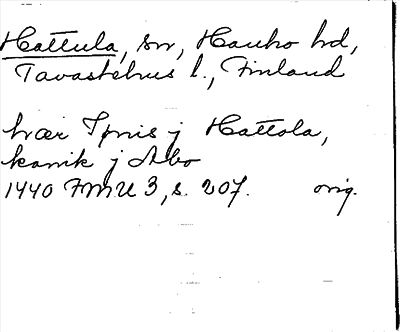 Hattula, sn, Hauho hd,
Tavastehus l., Finland
hær Jønis j Hattola,
kanik j Abo
1440 FMU 3, s. 207. orig.